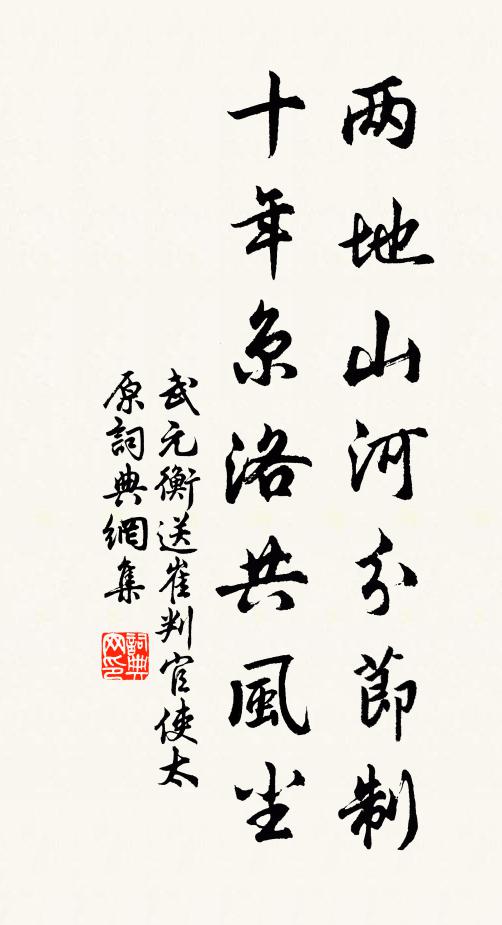 两地山河分節制
十年京洛共風尘
武元衡送崔判官使太
原詞典網集
詞典网印